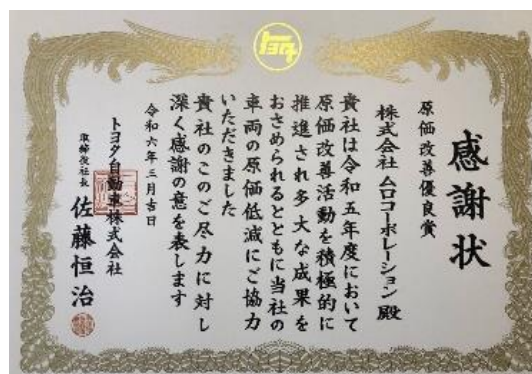 トヨタ
感謝状
原価改善優良賞
株式会社 ムロコーポレーション 殿
貴社は令和五年度において
原価改善活動を積極的に
推進され多大な成果を
おさめられるとともに当社の
車両の原価低減にご協力
いただきました
貴社のこのご尽力に対し
深く感謝の意を表します
令和六年三月吉日
トヨタ自動車株式会社
取締役社長 佐藤恒治